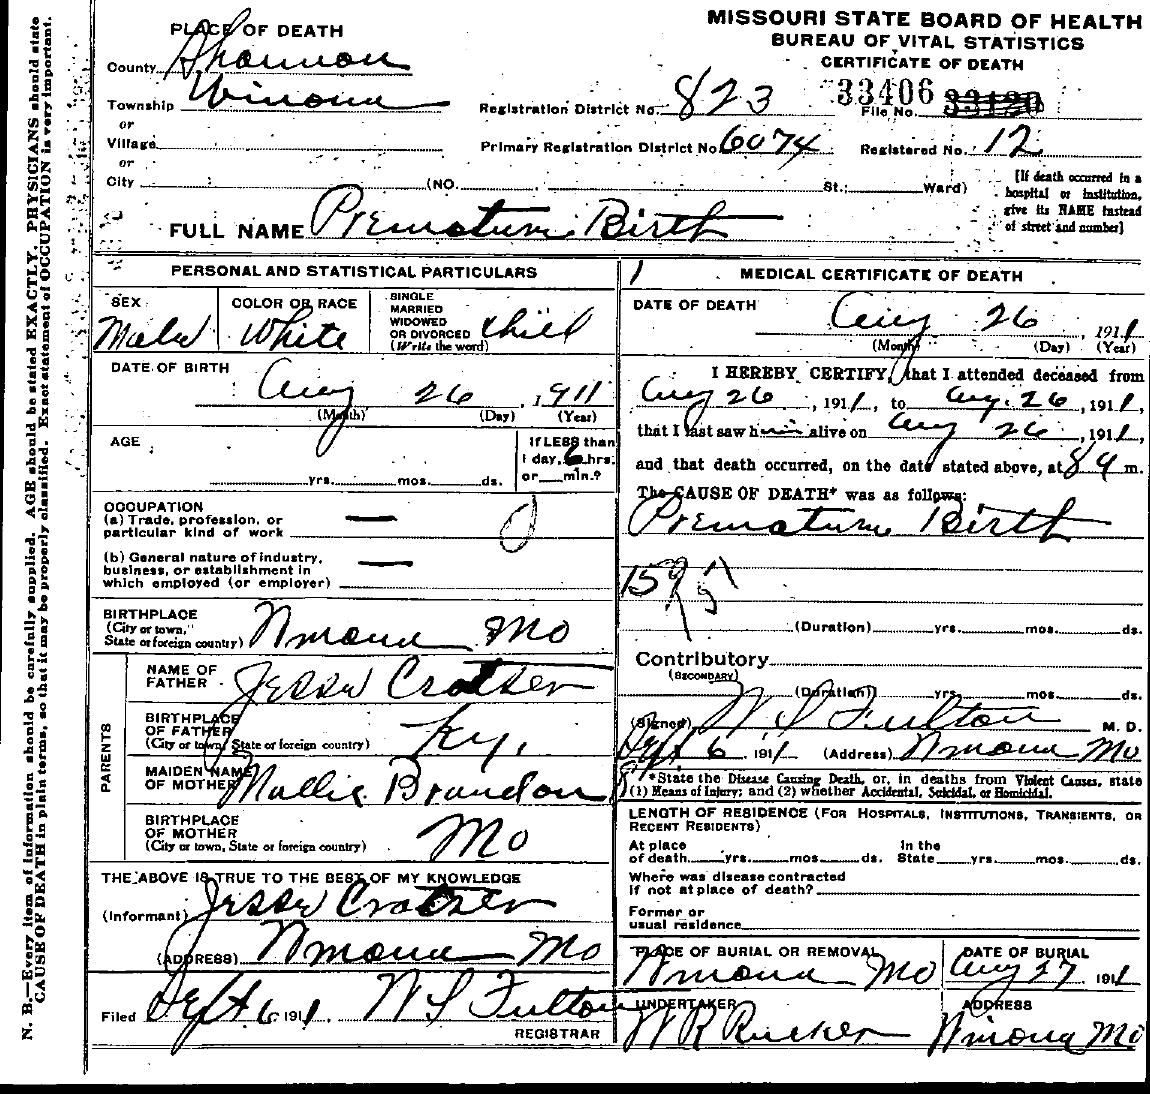 MISSOURI STATE BOARD OF HEALTH
BUREAU OF VITAL STATISTICS
CERTIFICATE OF DEATH
PLACE OF DEATH
County Shannon
Township Winona
or
Village
or
City (NO. St.; Ward)
Registration District No. 823
33406 File No. 33120
Primary Registration District No. 6074 Registered No. 12
[If death occurred in a
hospital or institution,
give its NAME instead
of street and number]
FULL NAME Premature Birth
PERSONAL AND STATISTICAL PARTICULARS
SEX Male
COLOR OR RACE White
SINGLE
MARRIED
WIDOWED
OR DIVORCED
(Write the word) child
DATE OF BIRTH Aug 26, 1911
(Month) (Day) (Year)
AGE yrs. mos. ds.
If LESS than
1 day, 6 hrs.
or min.?
OCCUPATION
(a) Trade, profession, or
particular kind of work —
(b) General nature of industry,
business, or establishment in
which employed (or employer) —
BIRTHPLACE
(City or town,
State or foreign country) Winona Mo
PARENTS
NAME OF
FATHER Jesse Crotser
BIRTHPLACE
OF FATHER
(City or town, State or foreign country) Ky.
MAIDEN NAME
OF MOTHER Mallie Brandon
BIRTHPLACE
OF MOTHER
(City or town, State or foreign country) Mo
THE ABOVE IS TRUE TO THE BEST OF MY KNOWLEDGE
(Informant) Jesse Crotser
(ADDRESS) Winona Mo
Filed Sept 6 1911. W S Fulton
REGISTRAR
MEDICAL CERTIFICATE OF DEATH
DATE OF DEATH Aug 26, 1911
(Month) (Day) (Year)
I HEREBY CERTIFY, that I attended deceased from
Aug 26, 1911, to Aug. 26, 1911,
that I last saw him alive on Aug 26, 1911,
and that death occurred, on the date stated above, at 8 a m.
The CAUSE OF DEATH* was as follows:
Premature Birth
(Duration) yrs. mos. ds.
Contributory
(SECONDARY)
(Duration) yrs. mos. ds.
(Signed) W S Fulton M. D.
Sept 6, 1911 (Address) Winona Mo
*State the Disease Causing Death, or, in deaths from Violent Causes, state
(1) Means of Injury; and (2) whether Accidental, Suicidal, or Homicidal.
LENGTH OF RESIDENCE (FOR HOSPITALS, INSTITUTIONS, TRANSIENTS, OR
RECENT RESIDENTS)
At place In the
of death yrs. mos. ds. State yrs. mos. ds.
Where was disease contracted
if not at place of death?
Former or
usual residence
PLACE OF BURIAL OR REMOVAL Winona Mo
DATE OF BURIAL Aug 27 1911
UNDERTAKER W R Rucker
ADDRESS Winona Mo
N. B.—Every item of information should be carefully supplied. AGE should be stated EXACTLY. PHYSICIANS should state
CAUSE OF DEATH in plain terms, so that it may be properly classified. Exact statement of OCCUPATION is very important.